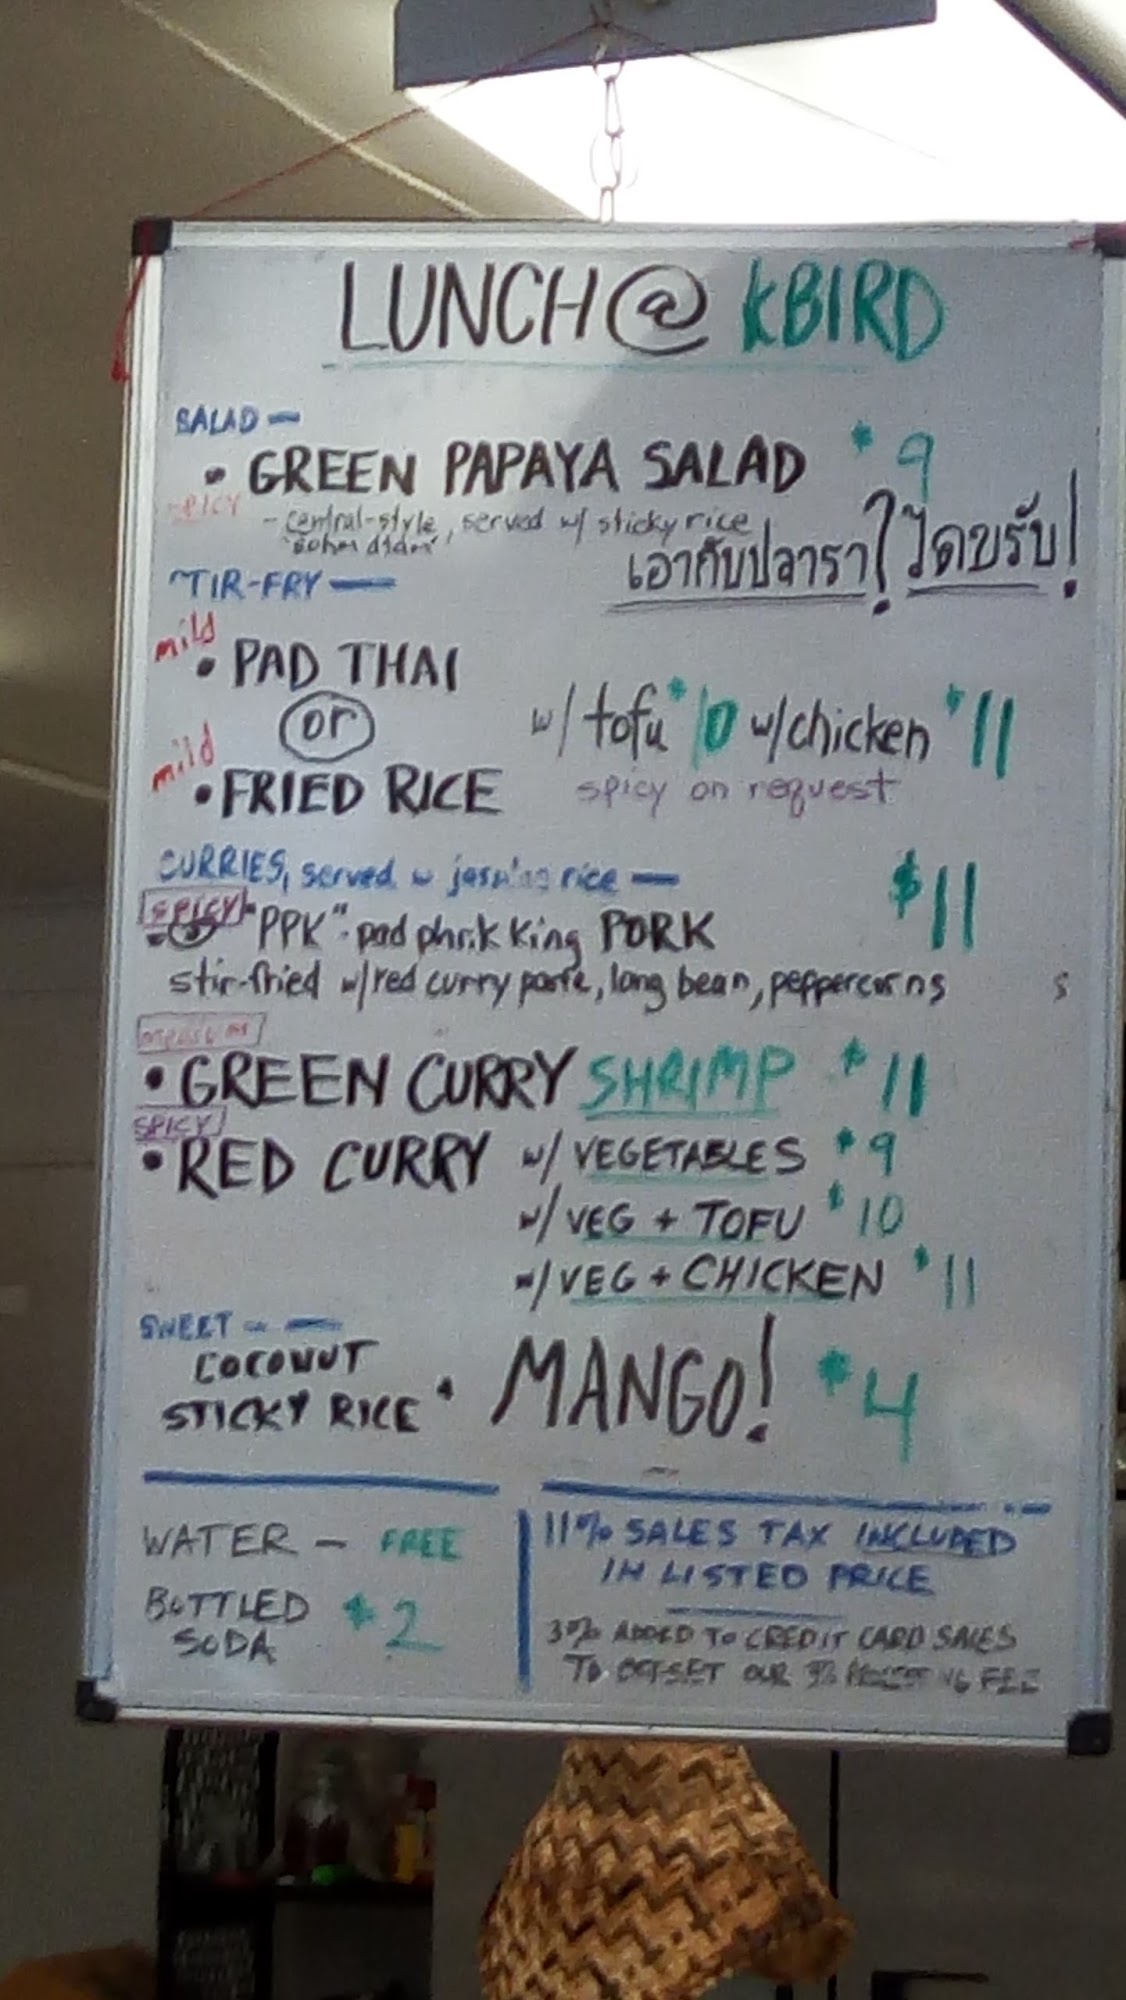 LUNCH @ KBIRD
SALAD —
• GREEN PAPAYA SALAD $9
SPICY
- central-style, served w/ sticky rice
เอากับปลารา? ได้ครับ!
TIR-FRY —
mild
• PAD THAI
or
w/ tofu $10 w/chicken $11
mild
• FRIED RICE
spicy on request
CURRIES, served w jasmine rice — $11
SPICY
"PPK" - pad phrik king PORK
stir-fried w/red curry paste, long bean, peppercorns
MEDIUM
• GREEN CURRY SHRIMP $11
SPICY
• RED CURRY w/ VEGETABLES $9
w/ VEG + TOFU $10
w/ VEG + CHICKEN $11
SWEET —
COCONUT
STICKY RICE + MANGO! $4
WATER — FREE
BOTTLED $2
SODA
11% SALES TAX INCLUDED
IN LISTED PRICE
3% ADDED TO CREDIT CARD SALES
TO OFFSET OUR 3% PROCESSING FEE